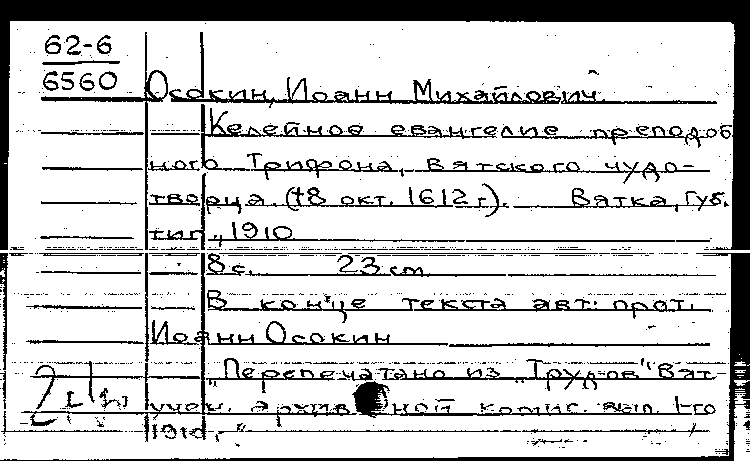 62-6
6560
Осокин, Иоанн Михайлович.
Келейное евангелие преподоб
ного Трифона, вятского чудо-
творца. (†8 окт. 1612 г.). Вятка, Губ.
тип., 1910
8 с. 23 cm
В конце текста авт: прот.
Иоанн Осокин
„Перепечатано из „Трудов" Вят
учен. архивной комис. вып. I-го
1910 г."